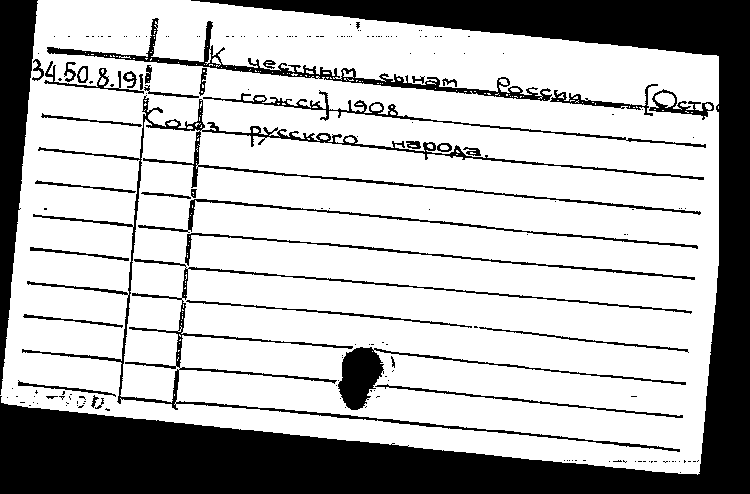 К честным сынам России. [Остро
34.50.8.191
гожск], 1908.
Союз русского народа.